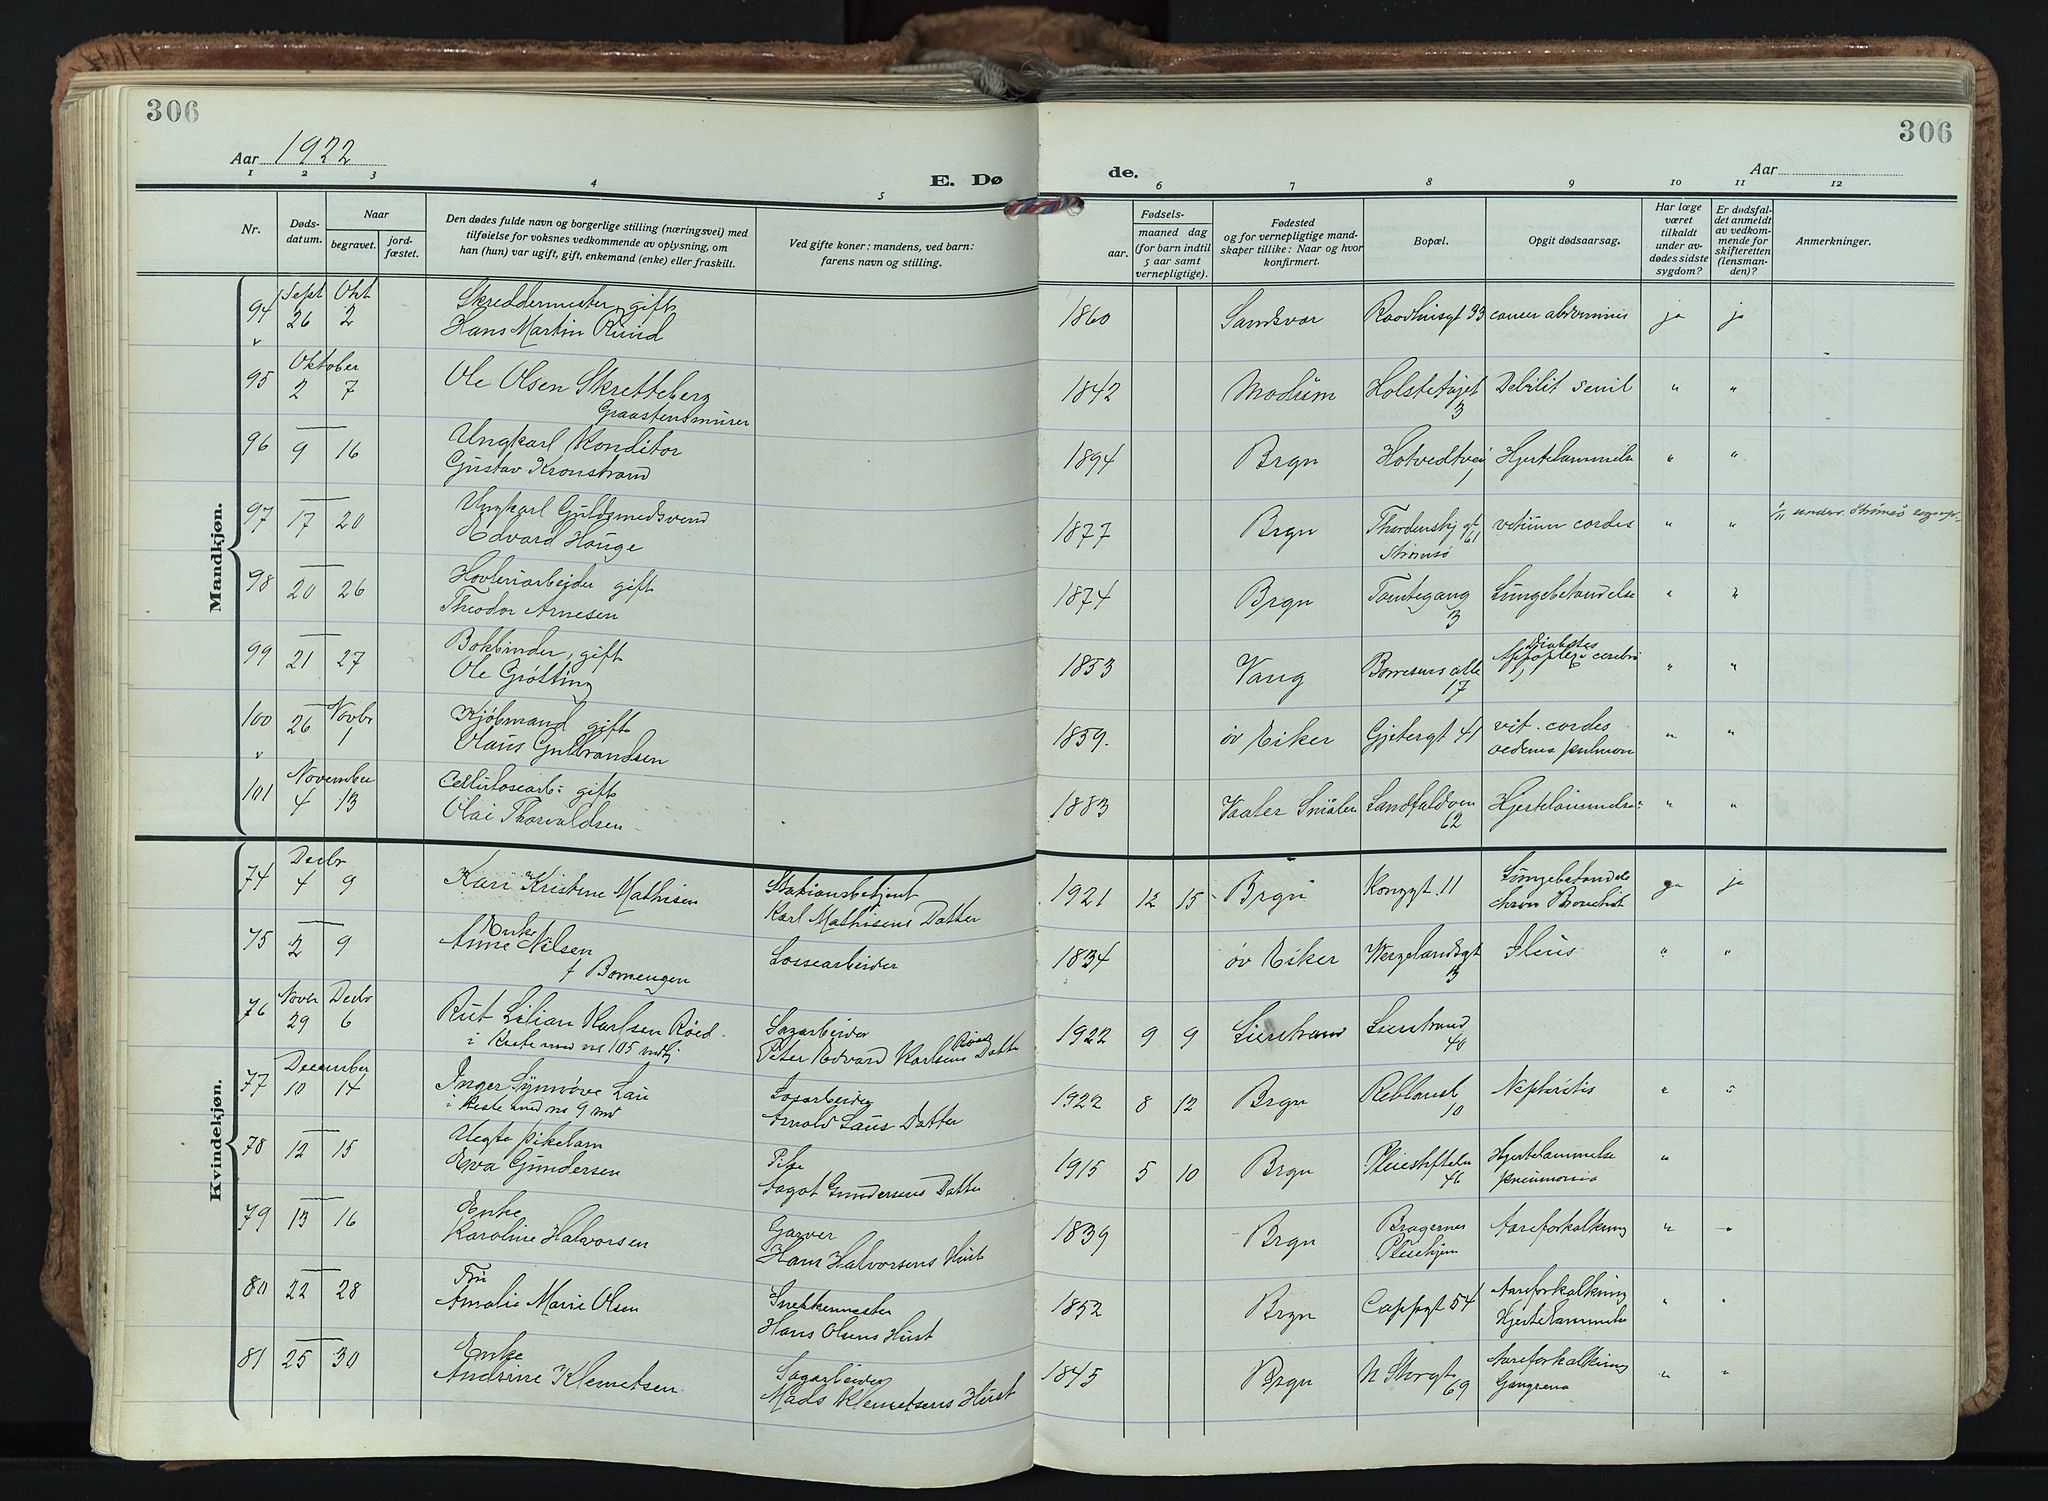 306
306
Aar 1922
E. Dø
de.
Aar
1 2 3 4 5 6 7 8 9 10 11 12
Nr.
Døds-
datum.
Naar
begravet.
jord-
fæstet.
Den dødes fulde navn og borgerlige stilling (næringsvei) med
tilføielse for voksnes vedkommende av oplysning, om
han (hun) var ugift, gift, enkemand (enke) eller fraskilt.
Ved gifte koner: mandens, ved barn:
farens navn og stilling.
Fødsels-
aar.
maaned dag
(for barn indtil
5 aar samt
vernepligtige).
Fødested
og for vernepligtige mand-
skaper tillike: Naar og hvor
konfirmert.
Bopæl.
Opgit dødsaarsag.
Har læge
været
tilkaldt
under av-
dødes sidste
sygdom?
Er dødsfal-
det anmeldt
av vedkom-
mende for
skifteretten
(lensman-
den)?
Anmerkninger.
Mandkjøn.
94 Sept 26 Okt 2 Skreddermester, gift
Hans Martin Ruud 1860 Sandsvær Raadhusgt 33 cancer abdominis ja ja
95 Oktober 2 7 Ole Olsen Skretteberg
Graastensmurer 1842 Modum 3 Debilit senil " "
96 9 16 Ungkarl Konditor
Gustav Kronstrand 1894 Brgn Hotvedtvei 1 Hjertelammelse " "
97 17 20 Ungkarl Guldsmedsvend
Edvard Hauge 1877 Brgn Thordenskj gt 61
Strømsø vitium cordis " "
98 20 26 Høvleriarbeider gift
Theodor Arnesen 1874 Brgn Tomtegang 3 Lungebetændelse " "
99 21 27 Bokbinder, gift
Ole Grøtting 1853 Vang Børresens alle 17 Diabetes
Appoplexi cerebri " "
100 26 Novbr 1 Kjøbmand gift
Olaus Gulbrandsen 1859. øv Eiker Gjetergt 41 vit. cordis
oedema pulmon " "
101 November 4 13 Cellulosearb: gift
Olai Thorvaldsen 1883 Vaaler Smaalen 62 Hjertelammelse " "
Kvindekjøn.
74 Decbr 4 9 Kari Kristine Mathisen Stationsbetjent
Karl Mathisens Datter 1921 12 15 Brgn Konggt 11 Lungebetændelse
Bronchit ja ja
75 2 9 Enke
Anne Nilsen
f Bomengen Lossearbeider 1834 øv Eiker Wergelandsgt 3 Ileus " "
76 Novbr 29 Decbr 6 Rut Lilian Karlsen Røed
i kiste med no 105 Sagarbeider
Peter Edvard Karlsens Røed Datter 1922 9 9 Lierstrand Lierstrand 40
77 December 10 14 Inger Synnøve Lau
i kiste med no 9 Løsarbeider
Arnold Laus Datter 1922 8 12 Brgn 10 " "
78 12 15 Uegte pikebarn
Eva Gundersen Pike
Aagot Gundersens Datter 1915 5 10 Brgn 46 Hjertelammelse
pneumonia "
79 13 16 Enke
Karoline Halvorsen Garver
Hans Halvorsens Hust 1839 Brgn Bragernes
Pleiehjem Aareforkalkning " "
80 22 28 Fru
Amalie Marie Olsen Snekkermester
Hans Olsens Hust 1852 Brgn Cappgt 54 Aareforkalkning
Hjertelammelse " "
81 25 30 Enke
Andrine Klemetsen Sagarbeider
Mads Klemetsens Hust 1845 Brgn N Storgt 69 Aareforkalkning
Gangrena " "